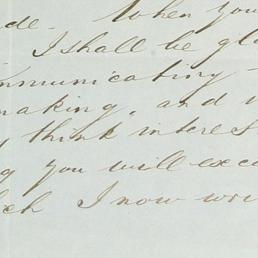 de. When you
I shall be gl
mmunicating
making, and
think interes
you will exc
I now wri